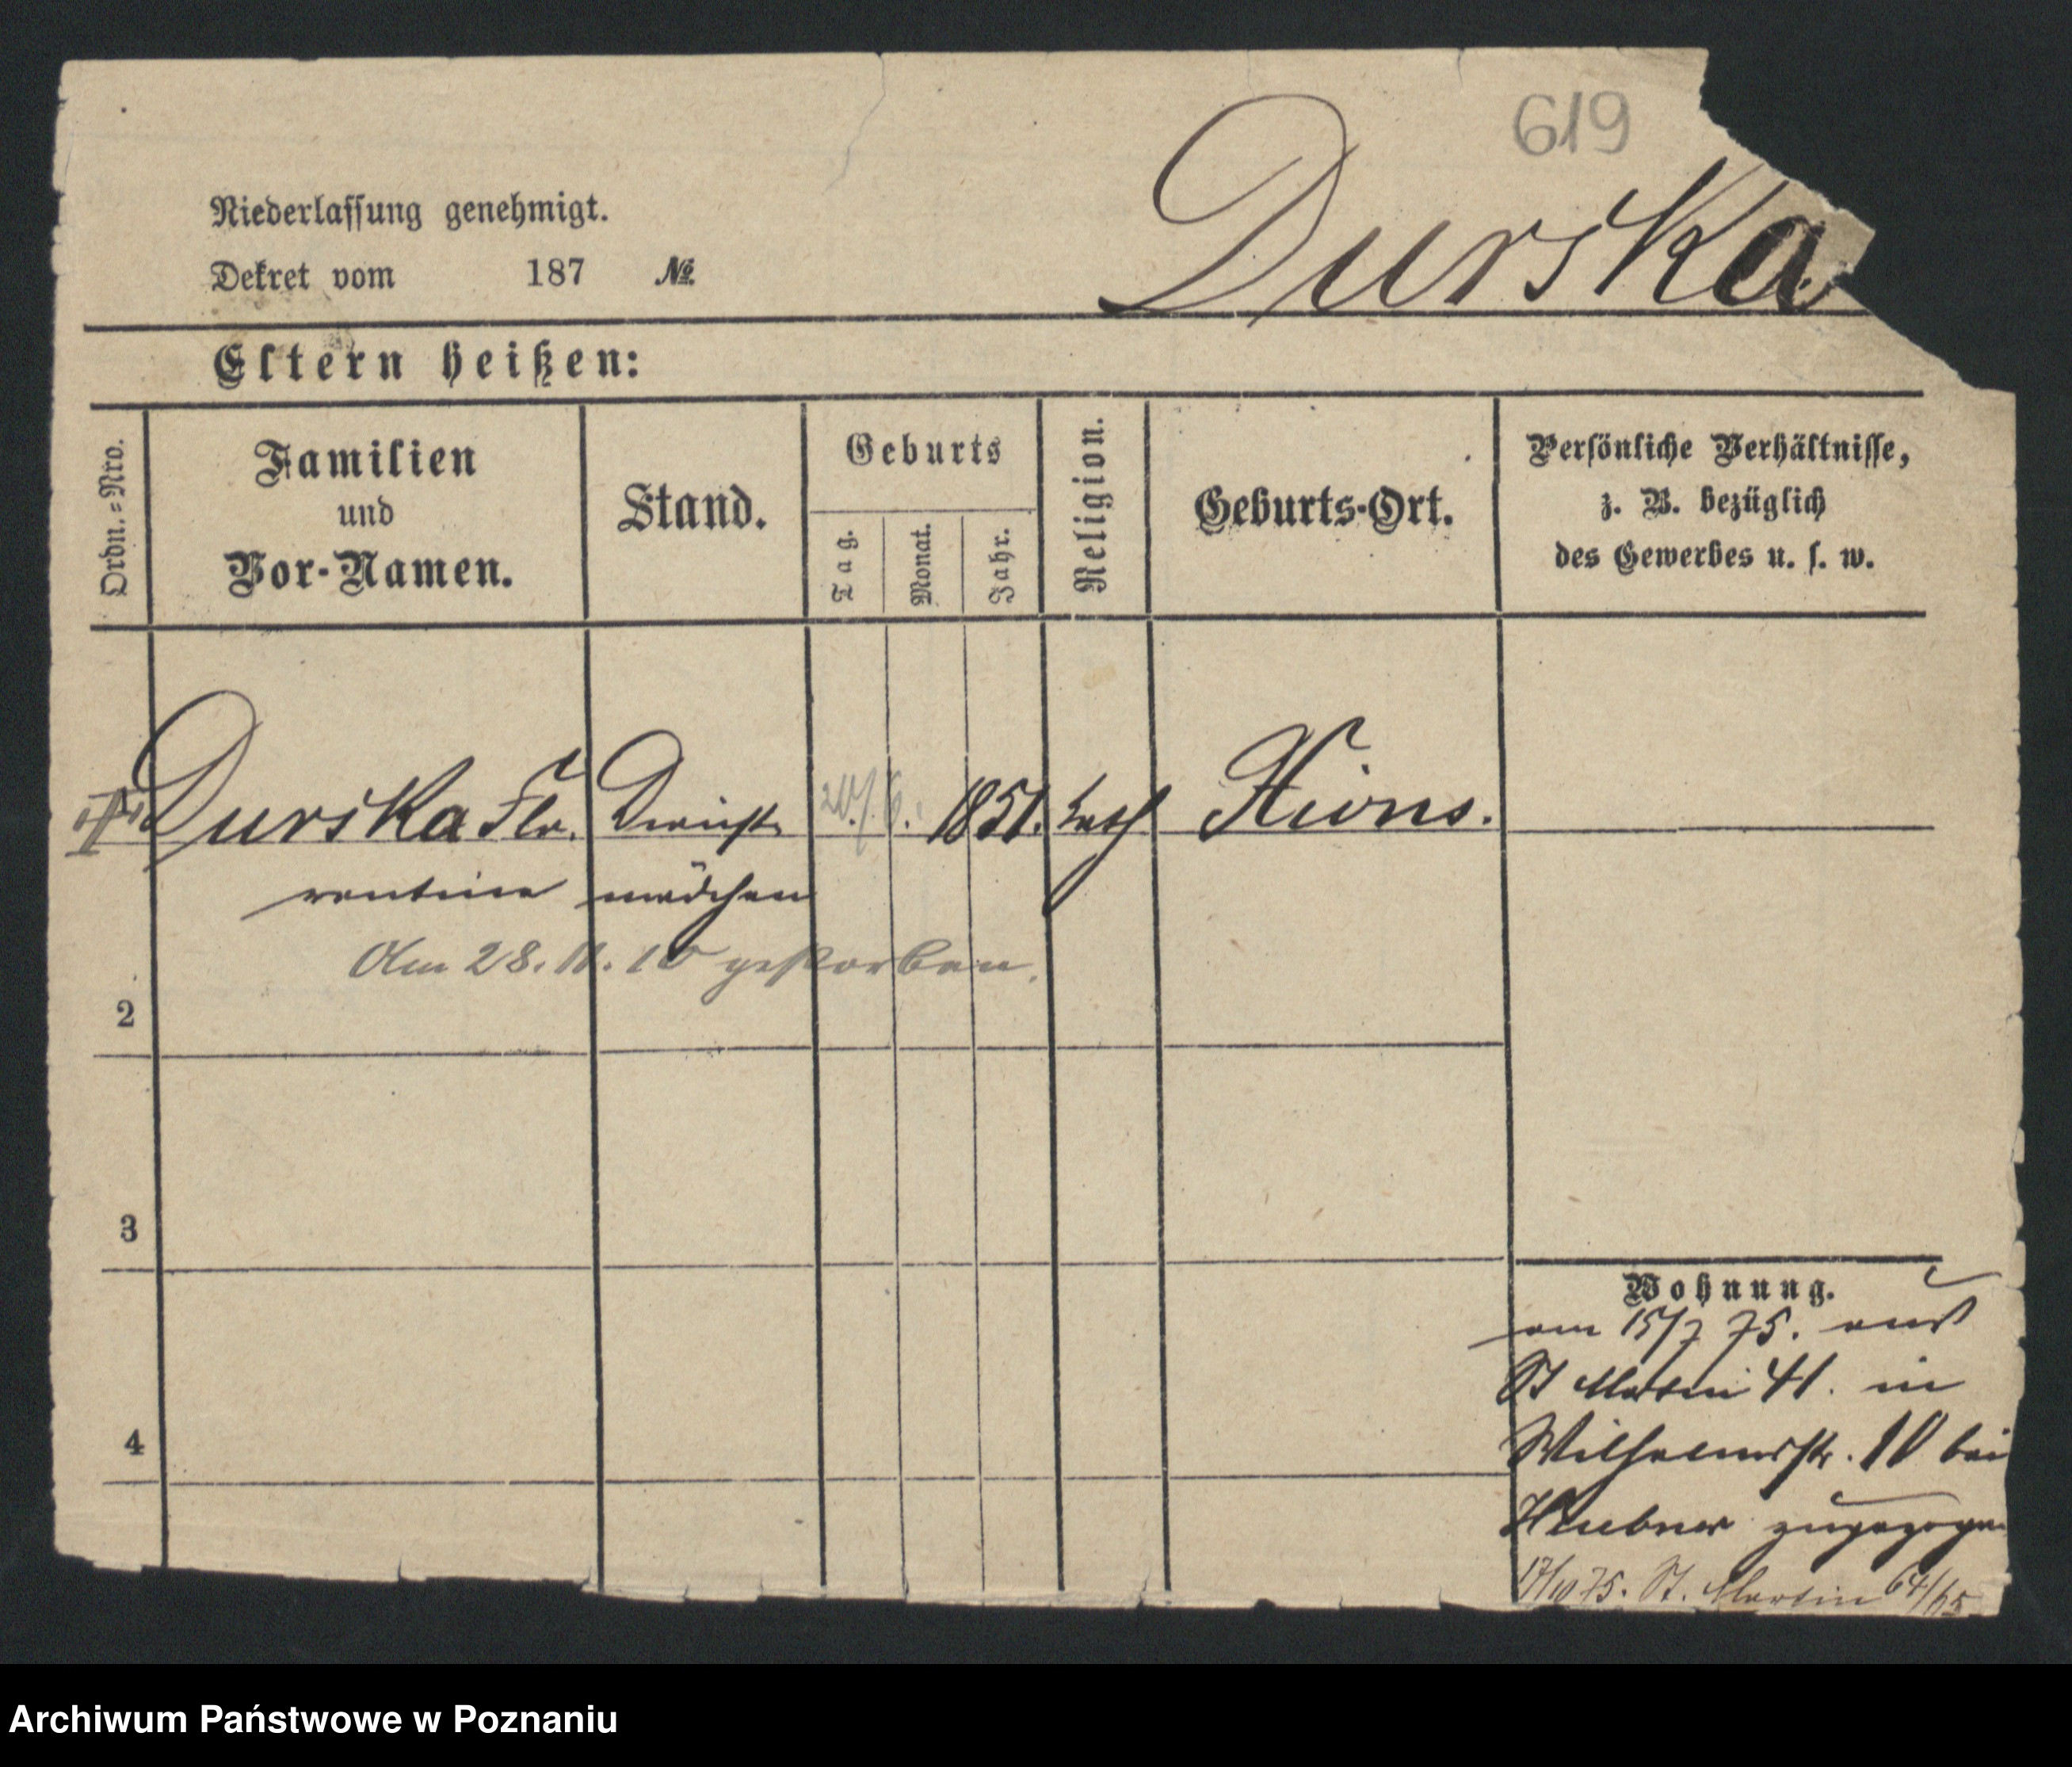 619
Durska
Niederlassung genehmigt.
Dekret vom 187 №
Eltern heißen:
Ordn.=Nro.
Familien
und
Vor-Namen.
Stand.
Geburts
Tag.
Monat.
Jahr.
Religion.
Geburts-Ort.
Persönliche Verhältnisse,
z. B. bezüglich
des Gewerbes u. s. w.
Durska Flo. Dienst 1851. kath Xions.
rentine mädchen
Am 28. 11. 10 gestorben.
2
3
4
Wohnung.
am 15/7 75. aus
St Martin 41. in
Wilhelmsstr. 10 bei
Huebner zugezogen
17/10 75. St. Martin 64/65
Archiwum Państwowe w Poznaniu